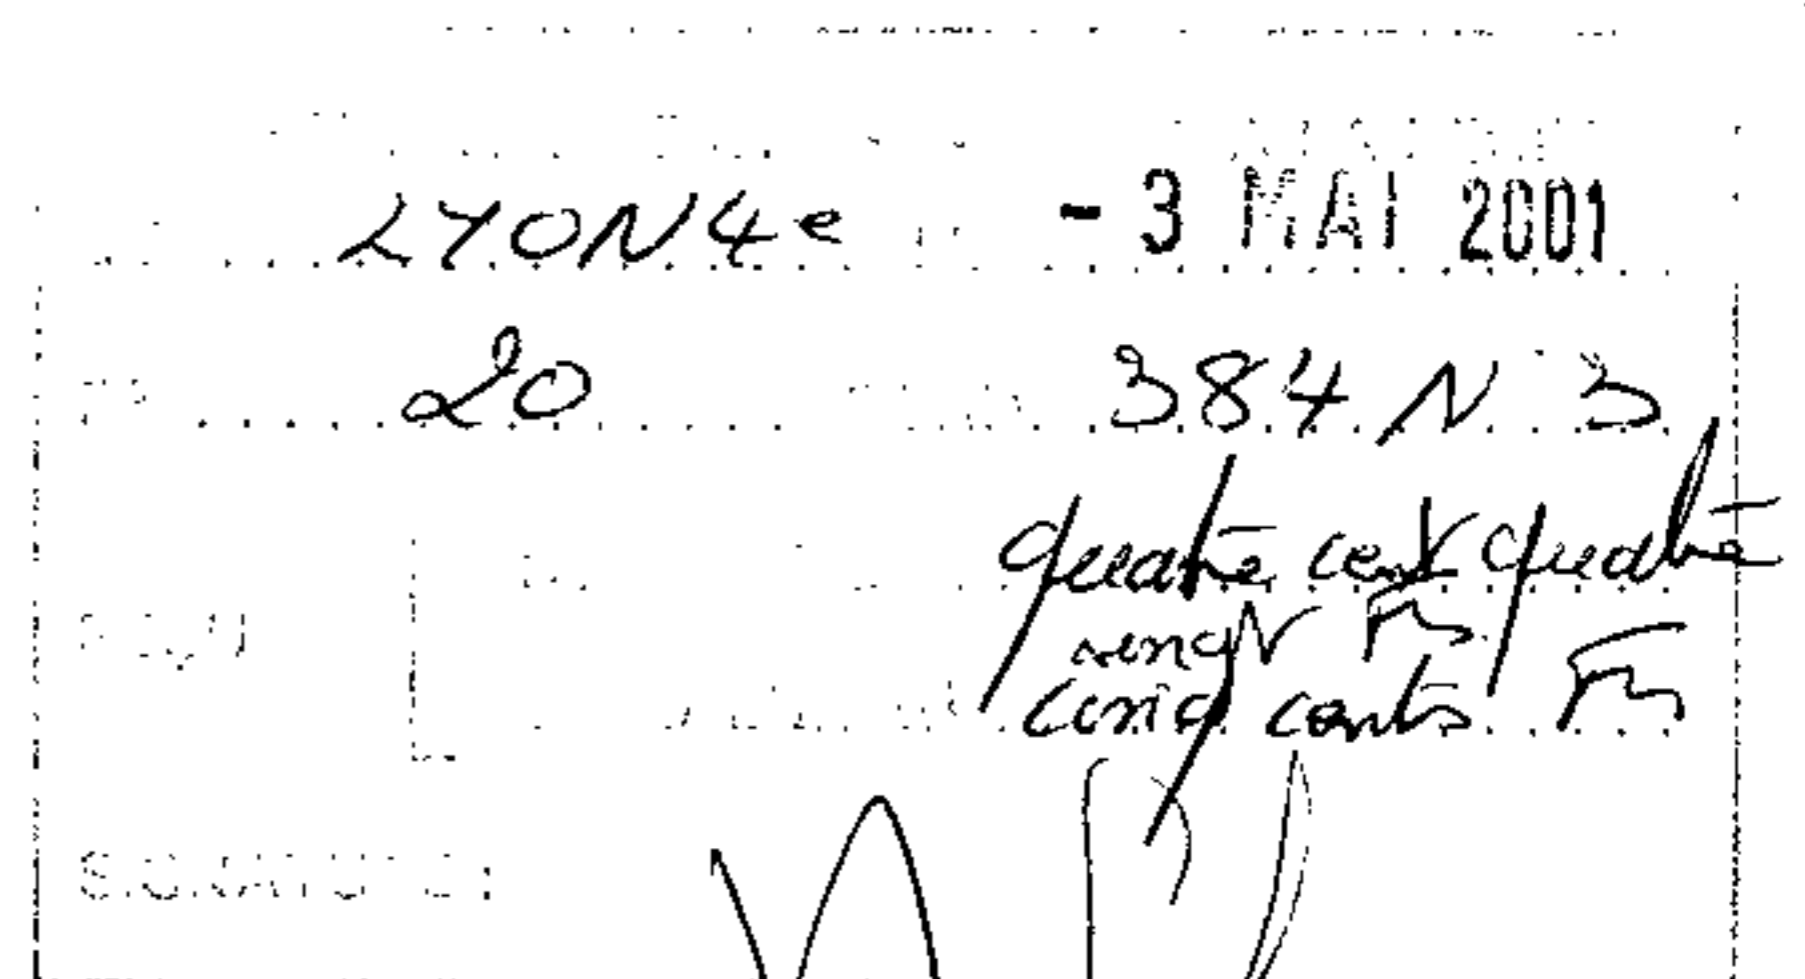 LYON 4e - 3 MAI 2001
20 384 N 3
quatre cent quatre
vingt Frs
Cinq cents Frs
SIGNATURE :